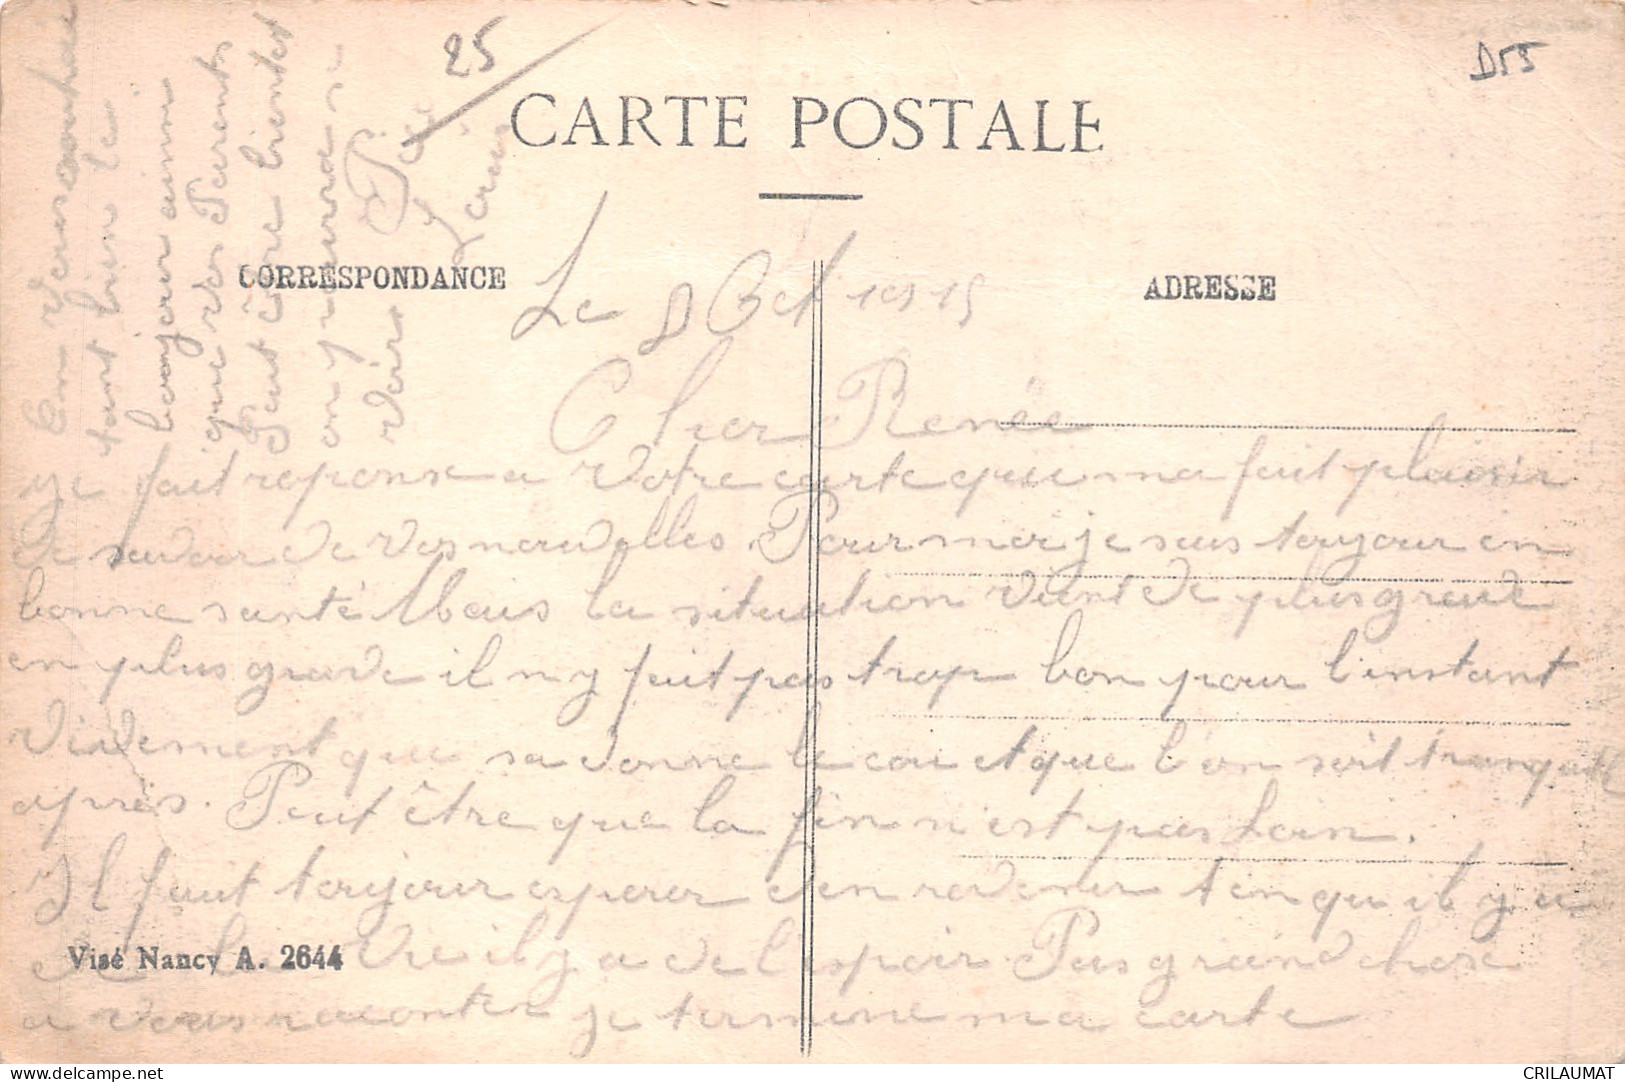 25
D55
CARTE POSTALE
CORRESPONDANCE
ADRESSE
Le 8 Oct 1915
Cher Renée
Je fait reponse a votre carte que ma fait plaisir
de savoir de vos nouvelles. Pour moi je suis toujour en
bonne santé Mais la situation vient de plus grave
en plus grave il n y fait pas trop bon pour l'instant
Vivement que sa donne le cou et que l'on soit tranquil
après. Peut être que la fin n'est pas loin.
Il faut toujour esperer d'en revenir ten qu il y a
de la vie il y a de l espoir. Pas grand chose
a vous raconter je termine ma carte
En vous souhai
tant bien le
bonjour ainsi
que vos Parents
Peut être bientot
on pourra se
voir
Louis
Visé Nancy A. 2644
delcampe.net
CRILAUMAT